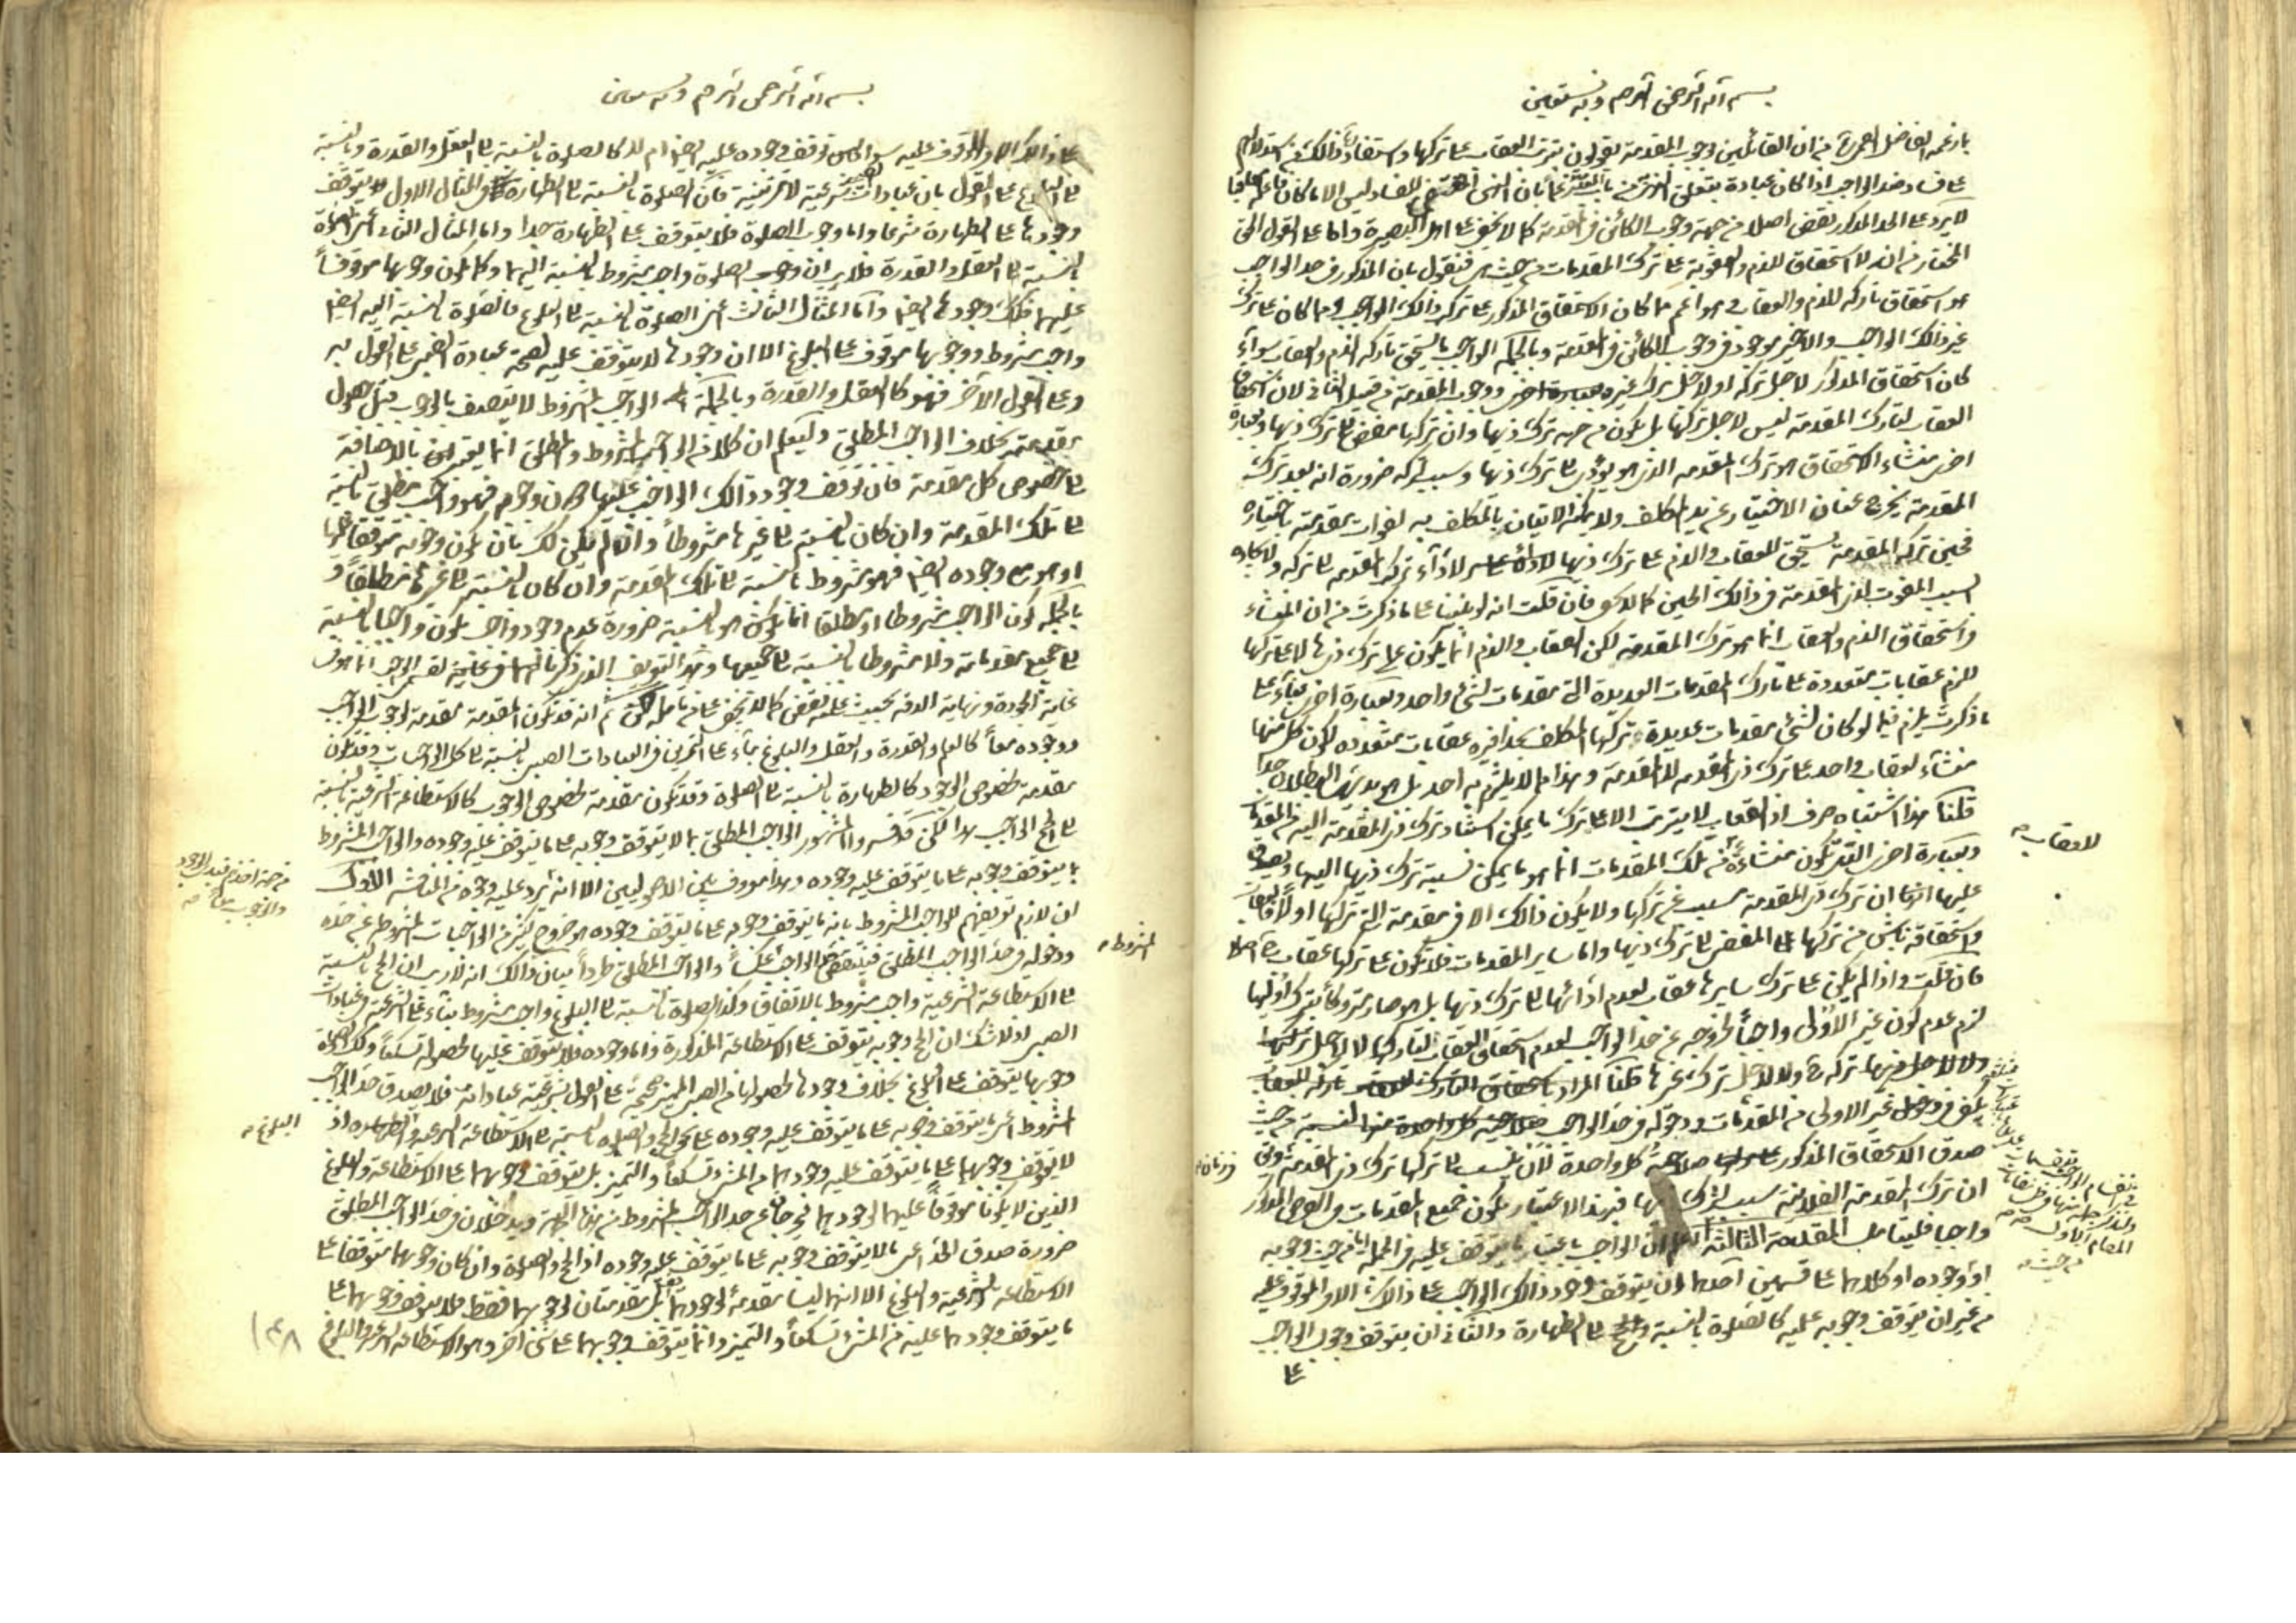 بسم الله الرحمن الرحيم وبه نستعين
بان القائلين بوجوب المقدمة يقولون بترتب العقاب على تركها
فساد ضد الواجب اذا كان عبادة
لا يرد على الحد المذكور نقض اصلا من جهة وجوب الكائن في المقدمة كما لا يخفى على اهل البصيرة واما على القول
المختار من انه لا استحقاق للذم والعقوبة على ترك المقدمات من حيث هي فنقول بان المذكور في حد الواجب
هو استحقاق تاركه للذم والعقاب هو اعم مما كان الاستحقاق المذكور على ترك ذلك الواجب او مما كان على ترك
غير ذلك الواجب والاخير موجود في وجوب الكائن في المقدمة وبالجملة الواجب ما يستحق تاركه الذم والعقاب سواء
كان استحقاق المذكور لاجل تركه او لاجل ترك غيره ووجوب المقدمة من قبيل الثاني لان استحقاق
العقاب لتارك المقدمة ليس لاجل تركها بل يكون من جهة ترك ذيها وان تركها مفض الى ترك ذيها وبعبارة
اخرى منشاء الاستحقاق هو ترك المقدمة الذي هو يؤدي الى ترك ذيها وسبب لتركه ضرورة انه بعد ترك
المقدمة يخرج عنان الاختيار عن يد المكلف ولا يمكنه الاتيان بالمكلف به لفوات مقدمته باختياره
فحين ترك المقدمة يستحق للعقاب والذم على ترك ذيها لاداء ترك المقدمة الى تركه
السبب المفوت لذي المقدمة في ذلك الحين كما لا يخفى فان قلت انه لو بنينا على ما ذكرت من ان المنشاء
في استحقاق الذم والعقاب انما هو ترك المقدمة لكن العقاب والذم انما يكون على ترك ذيها لا على تركها
للزم عقابات متعددة على تارك المقدمات العديدة التي مقدمات لشيء واحد وبعبارة اخرى بناء على
ما ذكرت يلزم فيما لو كان لشيء مقدمات عديدة تركها المكلف بحذافيره عقابات متعددة لكون كل منها
منشاء لعقاب واحد على ترك ذي المقدمة لا المقدمة وهذا مما لا يلتزم به احد بل هو بديهي البطلان جدا
قلنا هذا اشتباه صرف اذ العقاب لا يترتب الا على ترك ما يمكن استناد ترك ذي المقدمة اليه من المقدمات
وبعبارة اخرى التي تكون منشاء من تلك المقدمات انما هو ما يمكن نسبة ترك ذيها اليها ويصدق
عليها ان ترك ذي المقدمة مسبب عن تركها ولا يكون ذلك الا في مقدمة التي تركها اولا فالعقاب
واستحقاقه ناش من تركها المفضي الى ترك ذيها واما ساير المقدمات فلا يكون على تركها عقاب اصلا
فان قلت اذا لم يكن على ترك سايرها عقاب لعدم ادائها الى ترك ذيها
لزم عدم كون غير الاولى واجبا لخروجه عن حد الواجب لعدم استحقاق العقاب لتاركها لا لاجل تركها
ولا لاجل ترك غيرها قلنا المراد
يكفي في دخول غير الاولى من المقدمات ودخوله في حد الواجب
صدق الاستحقاق المذكور صلاحية كل واحدة لان يتسبب الى تركها ترك ذي المقدمة
ان ترك المقدمة الفلانية سبب لترك ذيها فبهذا الاعتبار يكون جميع المقدمات في الفرض المذكور
واجبا فليتامل المقدمة الثالثة اعلم ان الواجب باعتبار ما يتوقف عليه في الجملة من حيث وجوبه
او وجوده او كلاهما على قسمين احدهما ان يتوقف وجود ذلك الواجب على ذلك الامر الموقوف عليه
من غير ان يتوقف وجوبه عليه كالصلوة بالنسبة الى الطهارة والثاني ان يتوقف وجوب الواجب
على
لا عقاب صح
بسم الله الرحمن الرحيم وبه نستعين
على ذلك الامر الموقوف عليه سواء توقف وجوده عليه ايضا ام لا كالصلوة بالنسبة الى العقل والقدرة وبالنسبة
الى البلوغ على القول بان عبادات الصبي شرعية لا تمرينية فان الصلوة بالنسبة الى الطهارة في المثال الاول يتوقف
وجودها على الطهارة شرعا واما وجوب الصلوة فلا يتوقف على الطهارة جدا واما المثال الثاني اعني الصلوة
بالنسبة الى العقل والقدرة فلا ريب ان وجوب الصلوة واجب مشروط بالنسبة اليهما وكما يكون وجوبها موقوفا
عليهما فكذلك وجودها ايضا واما المثال الثالث اعني الصلوة بالنسبة الى البلوغ فالصلوة بالنسبة اليه ايضا
واجب مشروط ووجوبها موقوف على البلوغ الا ان وجودها لا يتوقف عليه لصحة عبادة الصبي على القول به
وعلى القول الآخر فهو كالعقل والقدرة وبالجملة الواجب المشروط لا يتصف بالوجوب قبل حصول
مقدمته بخلاف الواجب المطلق وليعلم ان كلا من الواجب المشروط والمطلق انما يعتبران بالاضافة
الى خصوص كل مقدمة فان توقف وجود ذلك الواجب عليها دون وجوبه فهو واجب مطلق بالنسبة
الى تلك المقدمة وان كان بالنسبة الى غيرها مشروطا وان لم يكن كذلك بان يكون وجوبه متوقفا عليها
او هو مع وجوده ايضا فهو مشروط بالنسبة الى تلك المقدمة وان كان بالنسبة الى غيرها مطلقا و
بالجملة كون الواجب مشروطا او مطلقا انما يكون هو بالنسبة ضرورة عدم وجود واجب يكون واجبا بالنسبة
الى جميع مقدماته ولا مشروطا بالنسبة الى جميعها
غاية الجودة ونهاية الدقة بحيث كما لا يخفى على من تامل ثم انه قد تكون المقدمة مقدمة لوجوب الواجب
ووجوده معا كالعلم والقدرة والعقل والبلوغ بناء على التمرين في العبادات الصبي بالنسبة الى كل الواجبات وقد تكون
مقدمة لخصوص الوجود كالطهارة بالنسبة الى الصلوة وقد تكون مقدمة لخصوص الوجوب كالاستطاعة الشرعية بالنسبة
الى الحج الواجب هذا لكن قد فسر المشهور الواجب المطلق بما لا يتوقف وجوبه على ما يتوقف عليه وجوده والواجب المشروط
بما يتوقف وجوبه على ما يتوقف عليه وجوده وهذا معروف بين الاصوليين الا انه يرد عليه وجوه من المناقشة الاول
ان لازم تعريفهم للواجب المشروط بانه ما يتوقف وجوبه على ما يتوقف وجوده هو خروج كثير من الواجبات المشروطة عن حده
ودخوله في حد الواجب المطلق فينتقض حد الواجب عكسا والواجب المطلق طردا بيان ذلك انه لا ريب ان الحج بالنسبة
الى الاستطاعة الشرعية واجب مشروط بالاتفاق وكذا الصلوة بالنسبة الى البلوغ واجب مشروط بناء على شرعية عبادات
الصبي اذ لا شك ان الحج وجوبه يتوقف على الاستطاعة المذكورة واما وجوده فلا يتوقف عليها لحصوله تسكعا وكذلك الصلوة
وجوبها يتوقف على البلوغ بخلاف وجودها لحصولها من الصبي المميز صحيحة على القول بشرعية عباداته فلا يصدق حد الواجب
المشروط اعني ما يتوقف وجوبه على ما يتوقف عليه وجوده على نحو الحج والصلوة بالنسبة الى الاستطاعة الشرعية اذ
لا يتوقف وجوبهما على ما يتوقف عليه وجودهما من المشي تسكعا والتميز بل يتوقف وجوبهما على الاستطاعة والبلوغ
الذين لا يكونا موقوفا عليهما لوجودهما فيخرجا عن حد الواجب المشروط من هذه الجهة ويدخلان في حد الواجب المطلق
ضرورة صدق الحد اعني ما لا يتوقف وجوبه على ما يتوقف عليه وجوده اذ الحج والصلوة وان كان وجوبهما متوقفا على
الاستطاعة الشرعية والبلوغ الا انهما ليسا مقدمة لوجودهما بل مقدمتان لوجوبهما فقط فلا يتوقف وجوبهما على
ما يتوقف وجودهما عليه من المشي تسكعا والتميز وانما يتوقف وجوبهما على شيء آخر وهو الاستطاعة الشرعية والبلوغ
المشروط صح
البلوغ صح
١٤٨